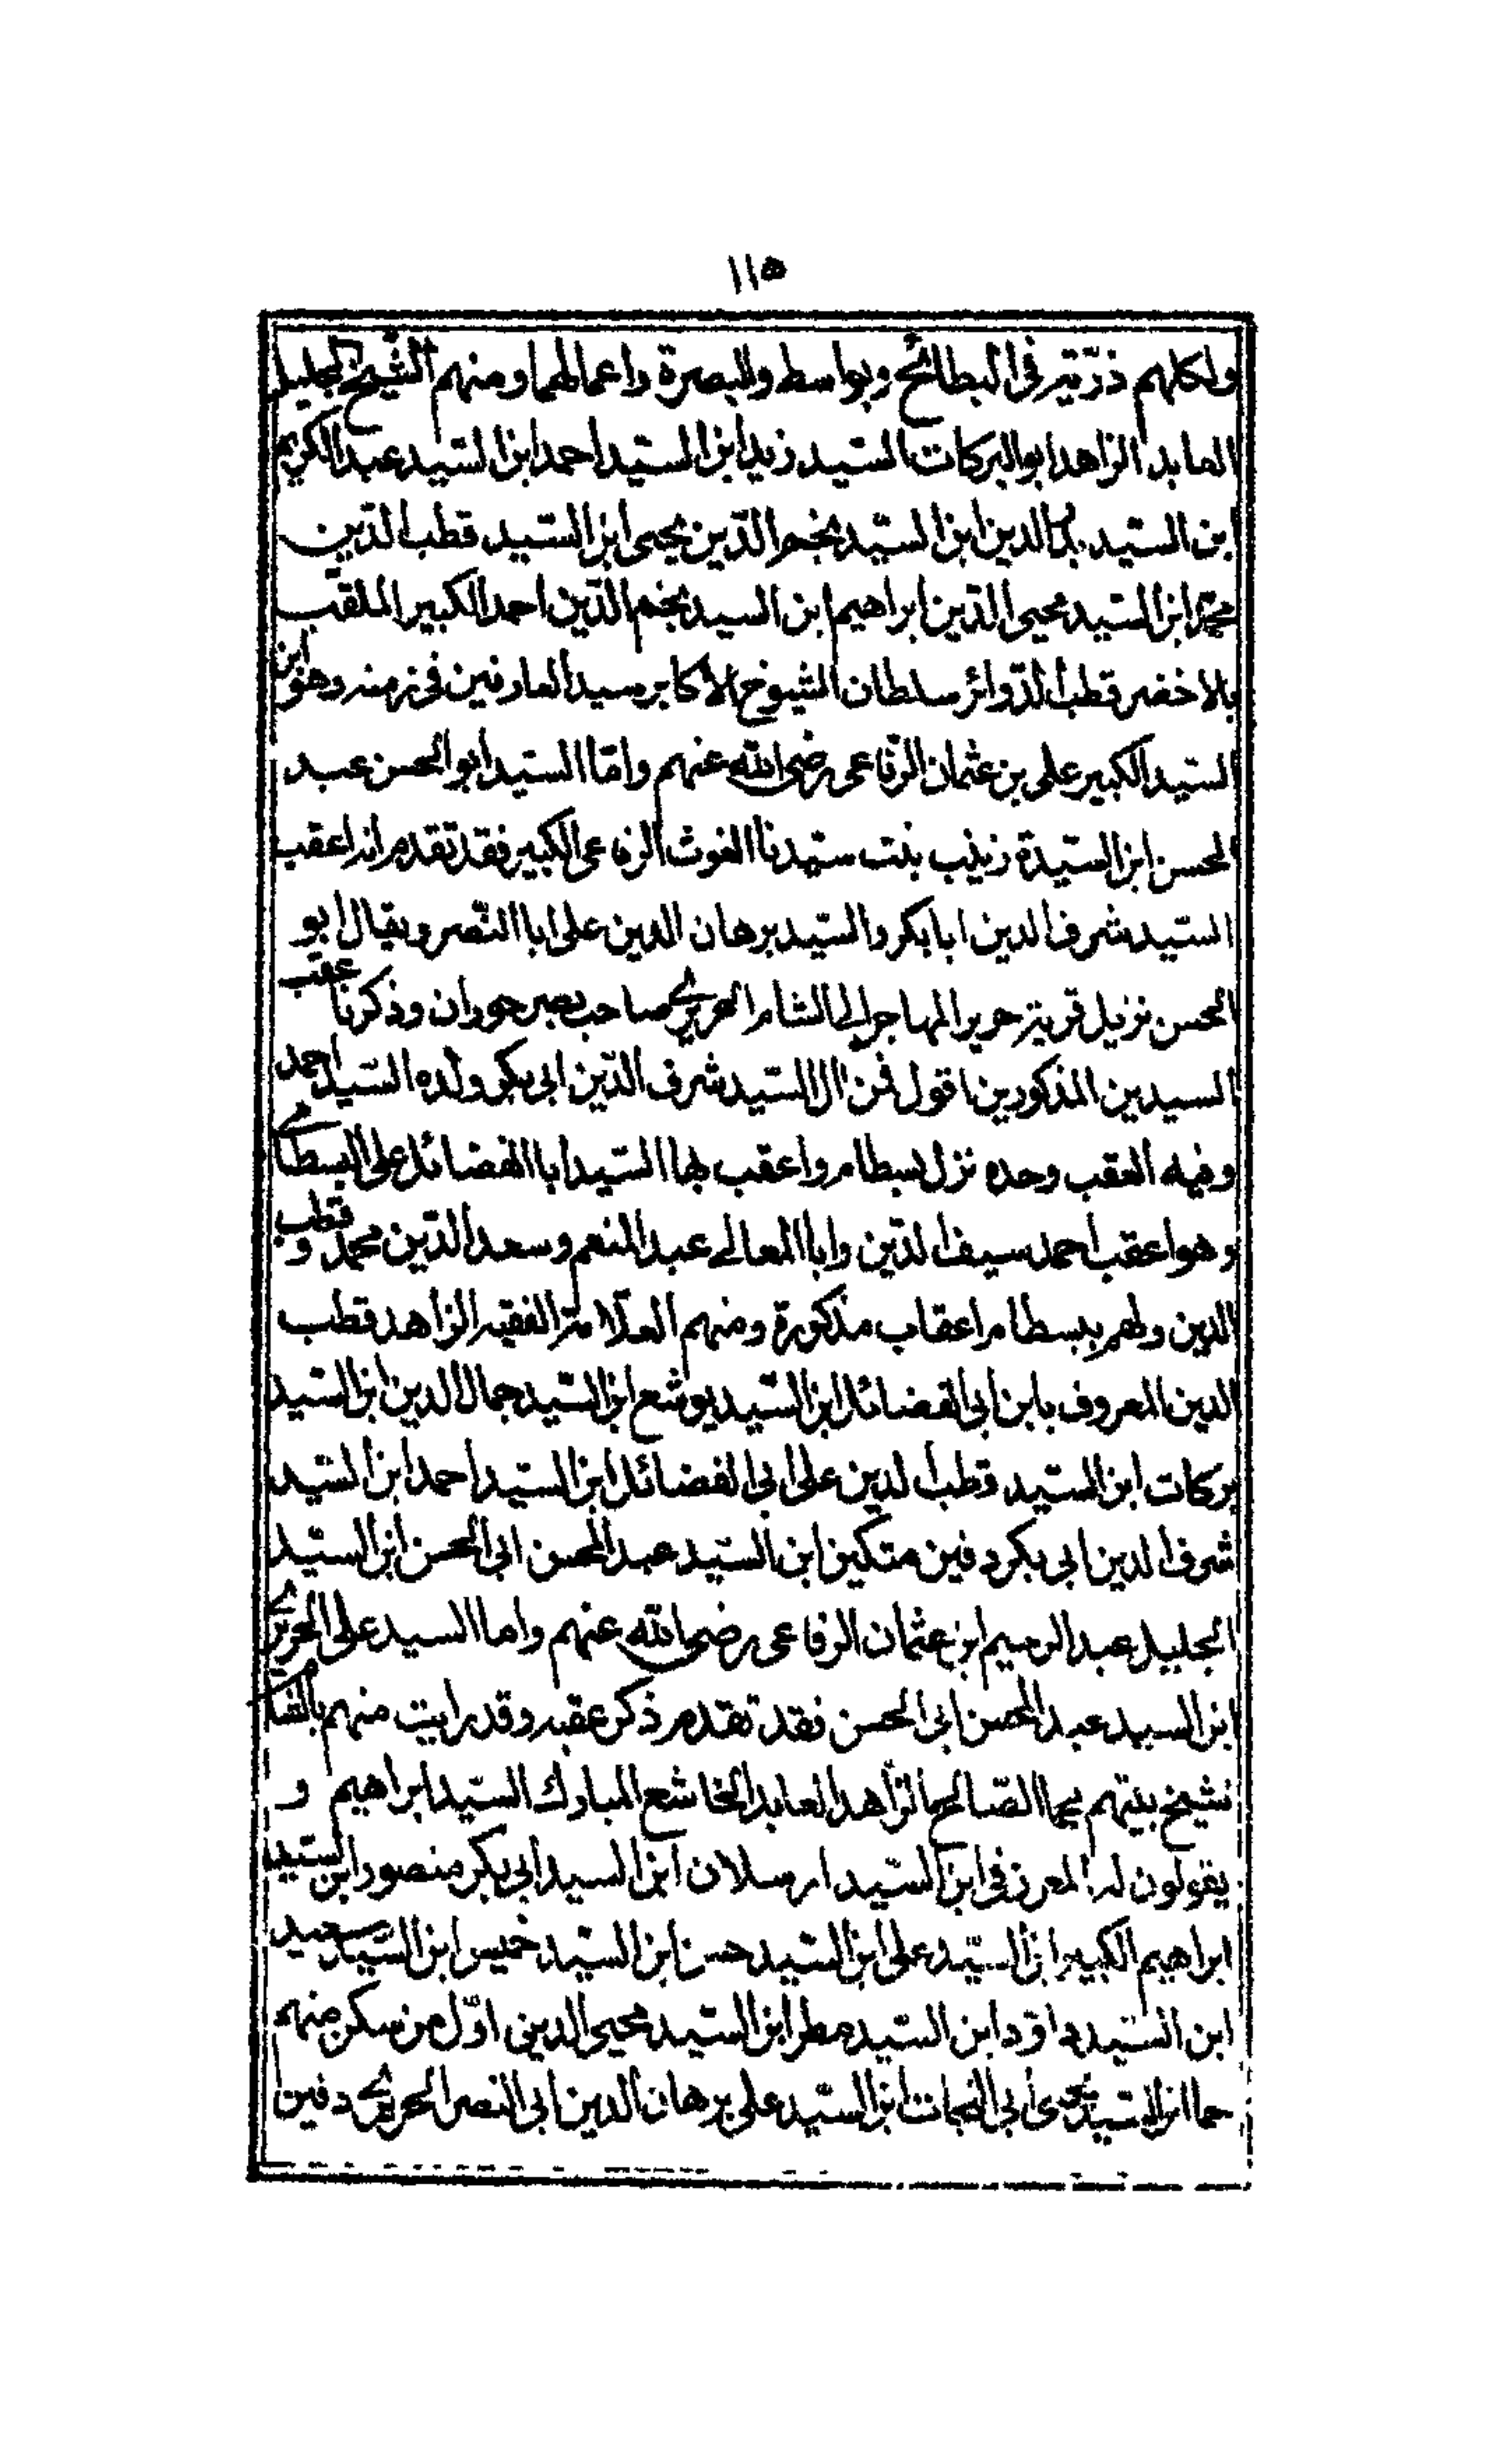 ١١٥
ولكلهم ذرّية فى البطائح وبواسط والبصرة واعمالهما ومنهم الشيخ الجليل
العابد الزاهد ابو البركات السّيد زيد ابن السّيد احمد ابن السّيد عبد الكريم
ابن السّيد الدين ابن السّيد نجم الدّين يحيى ابن السّيد قطب الدّين
محمد ابن السّيد محيى الدّين ابراهيم ابن السيد نجم الدّين احمد الكبير الملقّب
بالاخضر قطب الدّوائر سلطان الشيوخ الاكابر سيد العارفين فى زمنه وهو ابن
السّيد الكبير على بن عثمان الرّفاعى رضى الله عنهم وامّا السّيد ابو الحسن عبد
المحسن ابن السّيدة زينب بنت سيّدنا الغوث الرفاعى الكبير فقد تقدم انه اعقب
السّيد شرف الدين ابا بكر والسّيد برهان الدين على ابا النّصر ويقال ابو
الحسن نزيل قرية حرير المهاجر الى الشام الحريرى صاحب بصر حوران وذكرنا عقب
السيدين المذكورين اقول فمن ال السّيد شرف الدّين ابى بكر ولده السّيد احمد
وفيه العقب وحده نزل بسطام واعقب بها السّيد ابا الفضائل على البسطامى
وهو اعقب احمد سيف الدّين وابا المعالى عبد المنعم وسعد الدّين محمد وقطب
الدين ولهم ببسطام اعقاب مذكورة ومنهم العلّامة الفقيه الزاهد قطب
الدين المعروف بابن ابى الفضائل ابن السّيد يوشع ابن السّيد جمال الدين ابن السّيد
بركات ابن السّيد قطب الدين على ابى الفضائل ابن السّيد احمد ابن السّيد
شرف الدين ابى بكر دفين متكين ابن السّيد عبد المحسن ابى الحسن ابن السّيد
الجليل عبد الرحيم ابن عثمان الرفاعى رضى الله عنهم واما السيد على الحريرى
ابن السيد عبد المحسن ابى الحسن فقد تقدم ذكر عقبه وقد رايت منهم بالشام
شيخ بيتهم بحما الصّالح الزّاهد العابد الخاشع المبارك السّيد ابراهيم و
يقولون له ابن السّيد ارسلان ابن السيد ابى بكر منصور ابن السّيد
ابراهيم الكبير ابن السّيد على ابن السّيد حسن ابن السّيد خميس ابن السّيد سعيد
ابن السّيد داود ابن السّيد مطر ابن السّيد محيى الدين اوّل من سكن منهم
حما ابن السّيد يحيى ابى النجات ابن السّيد على برهان الدين ابى النصر الحريرى دفين